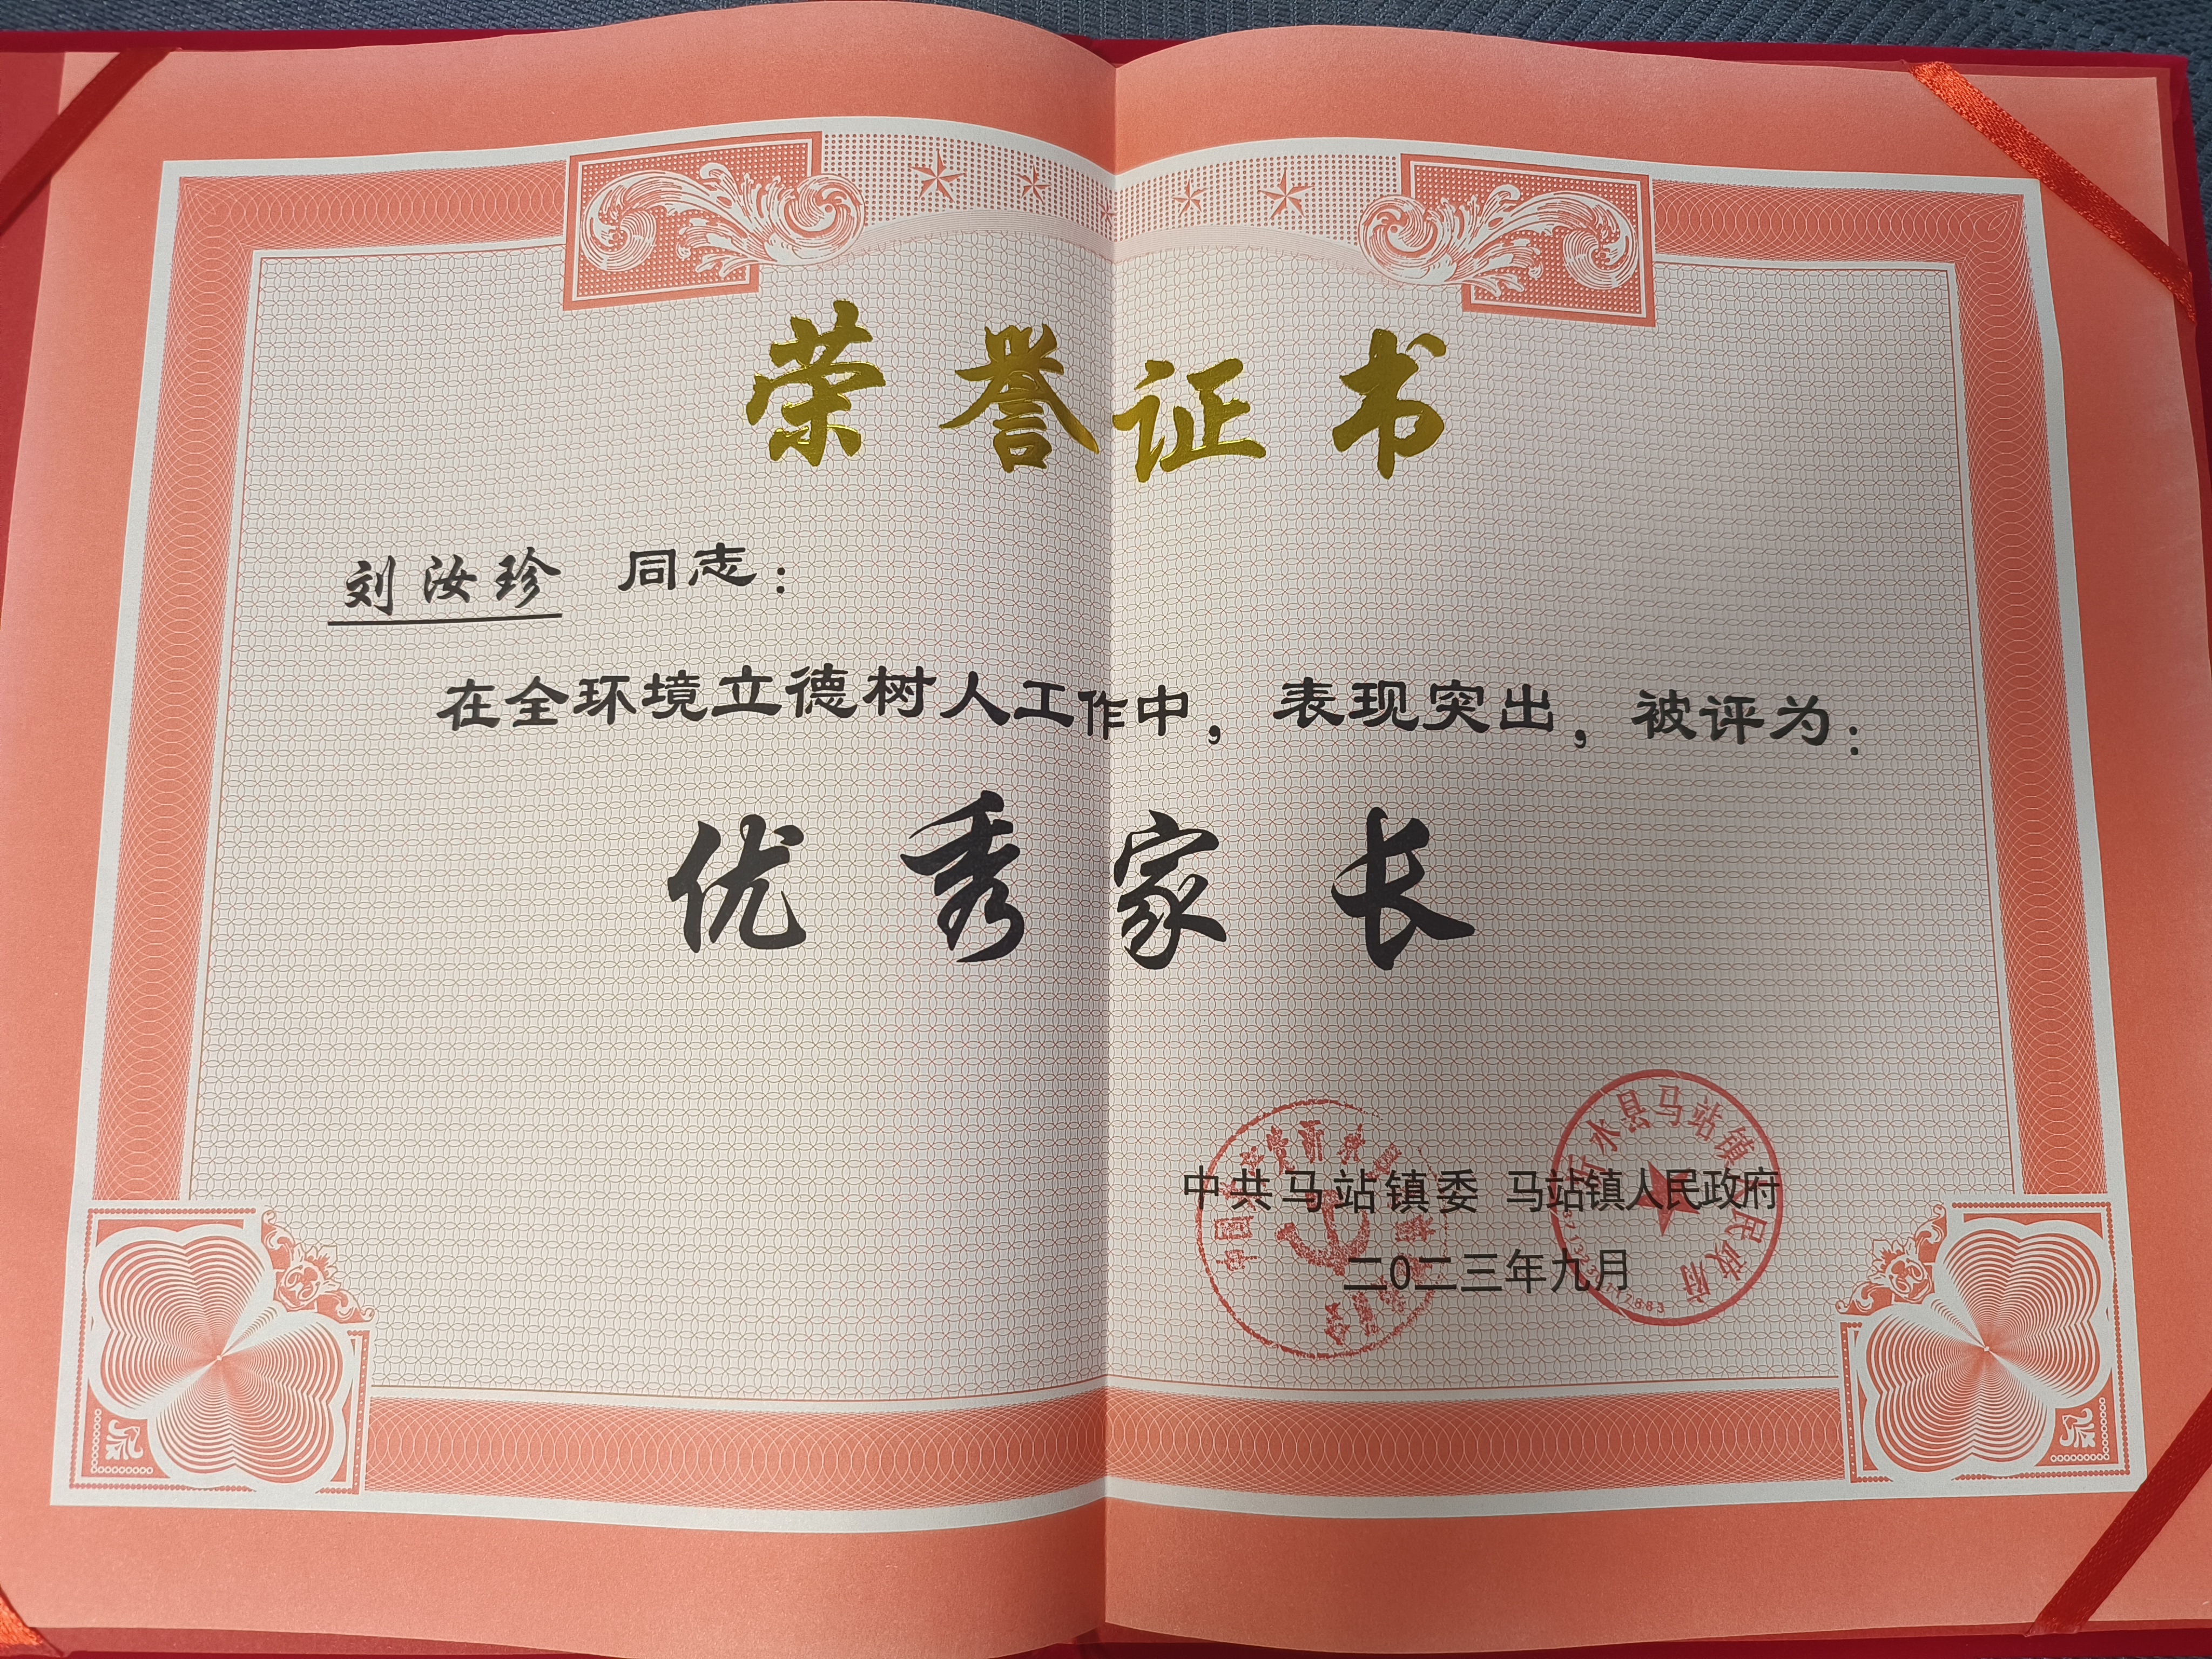 荣誉证书
刘汝珍 同志：
在全环境立德树人工作中，表现突出，被评为：
优秀家长
中共马站镇委 马站镇人民政府
二0二三年九月
沂水县马站镇人民政府